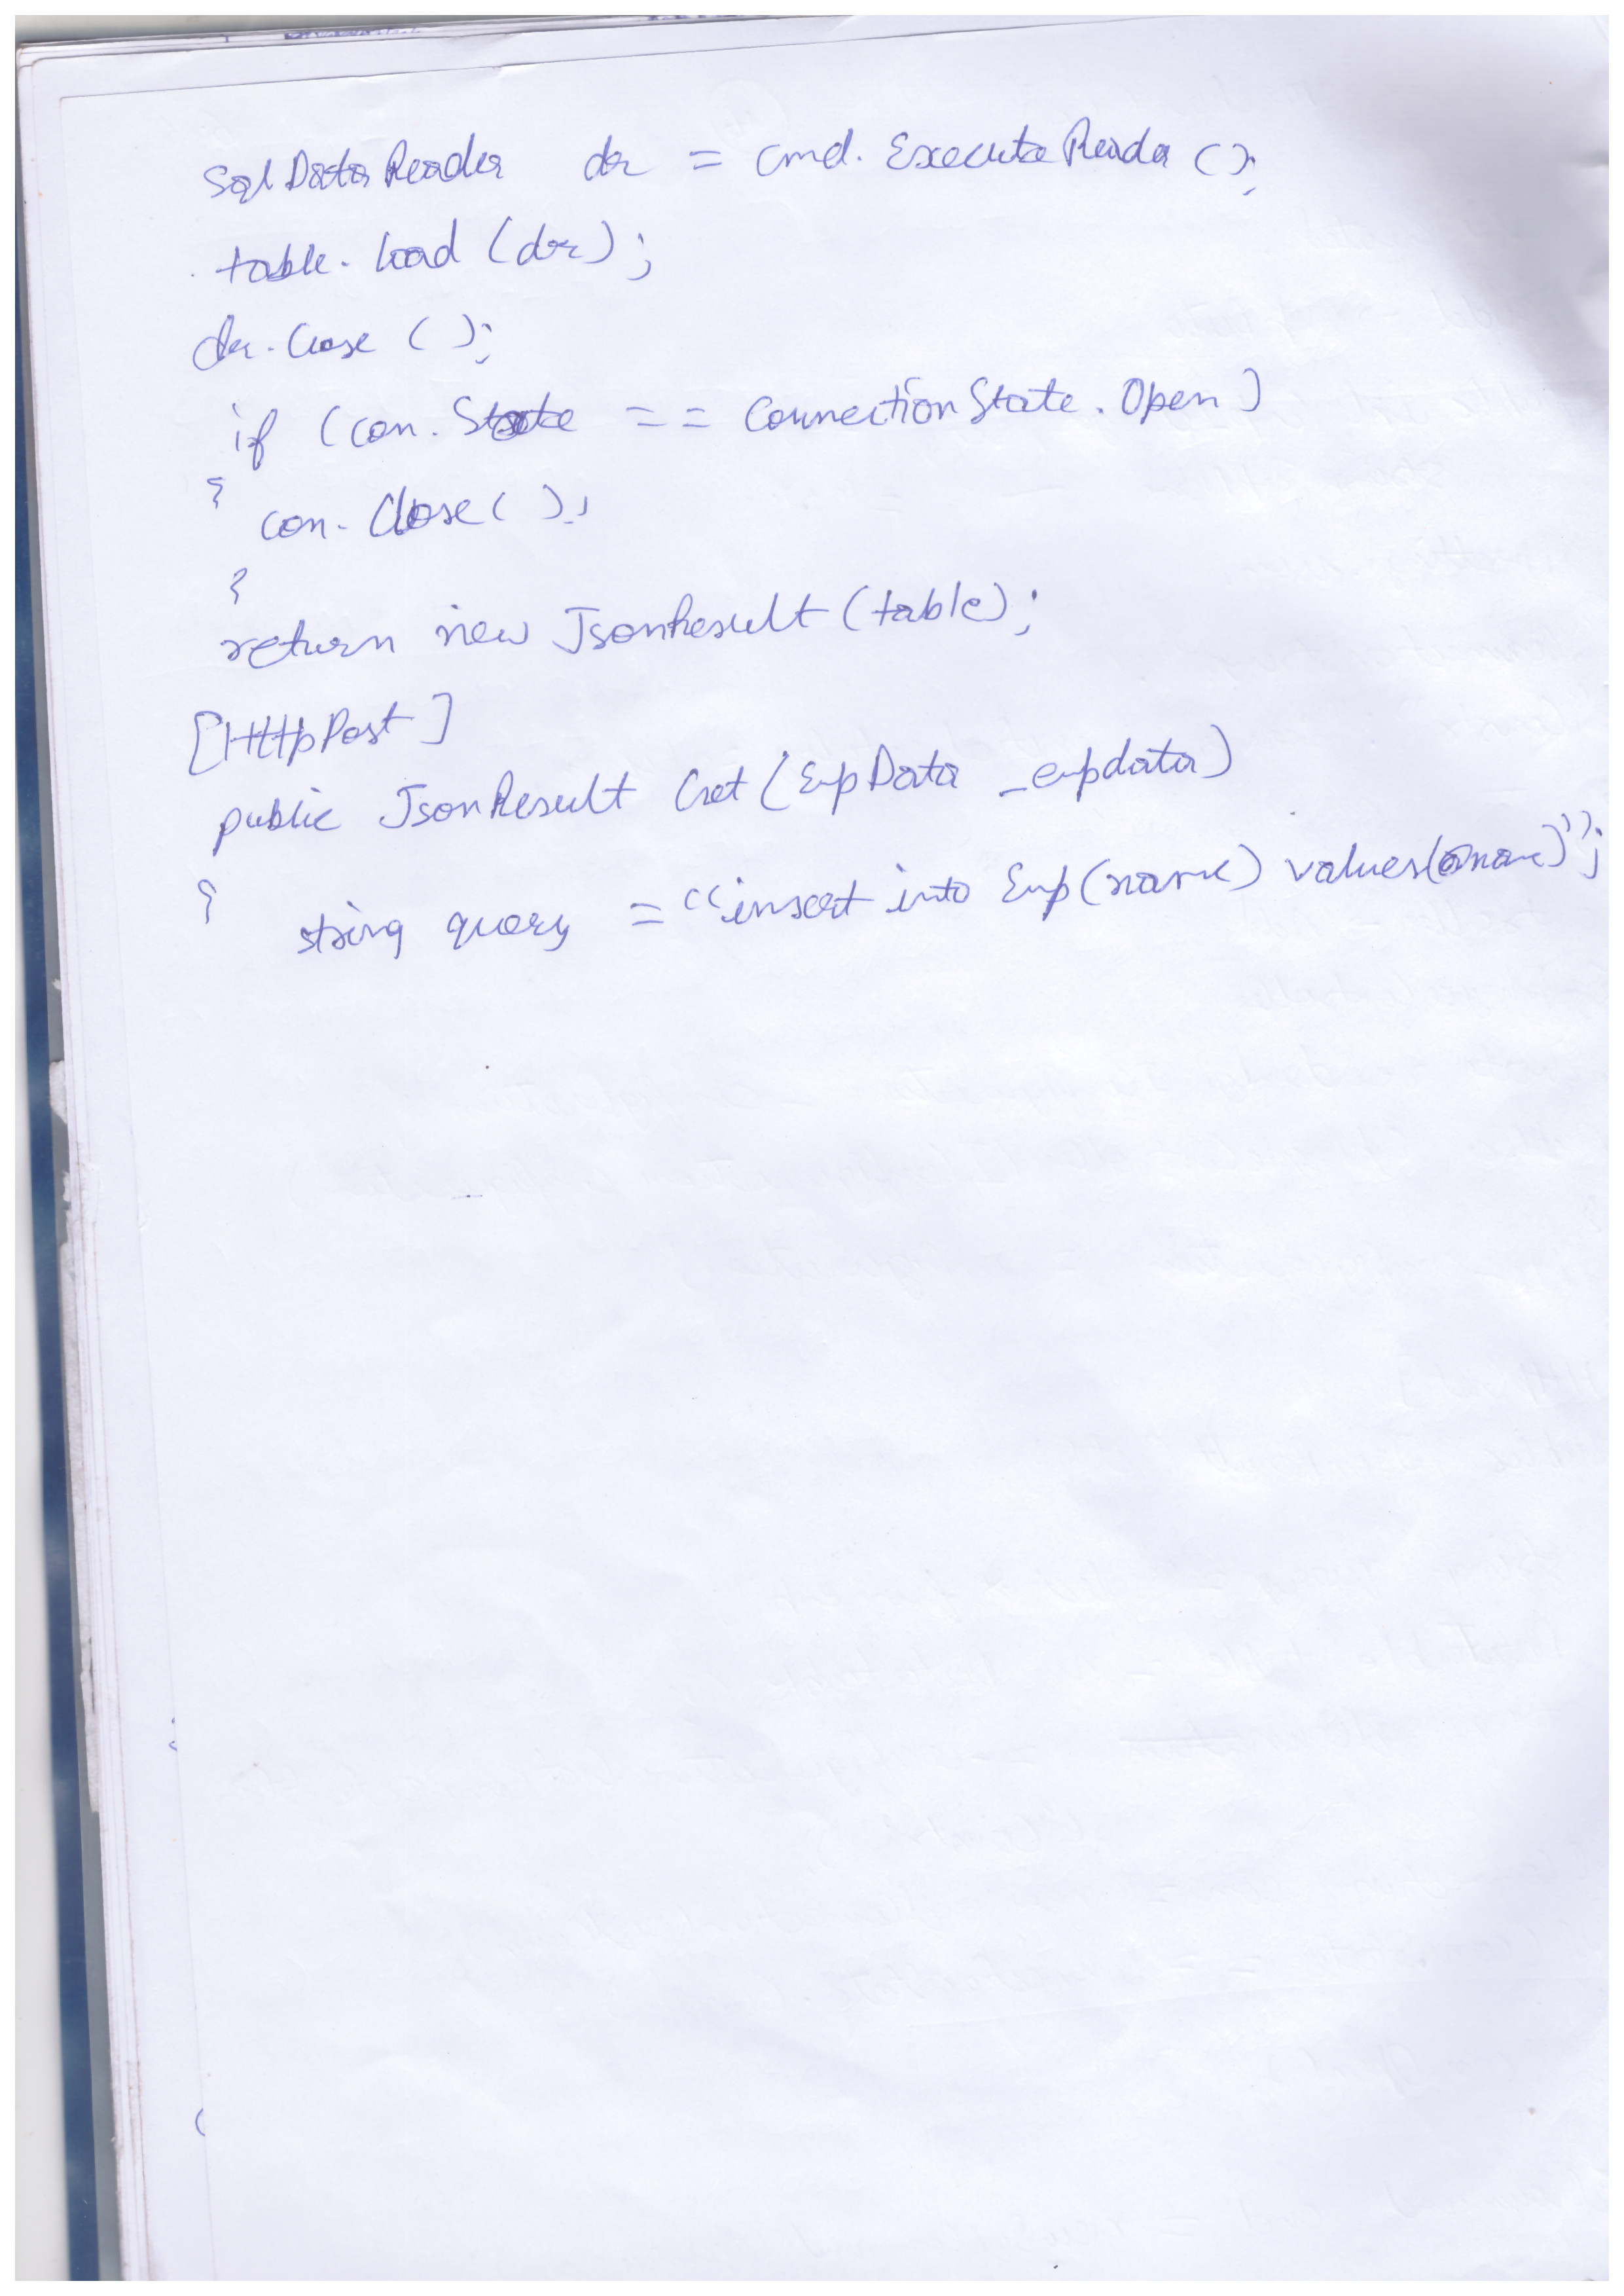 SqlDataReader dr = cmd.ExecuteReader();
table.load(dr);
dr.Close();
if (con.State == ConnectionState.Open)
{ con.Close();
}
return new JsonResult(table);
[HttpPost]
public JsonResult Get(EmpData _empdata)
{ string query = "insert into Emp(name) values(@name)";